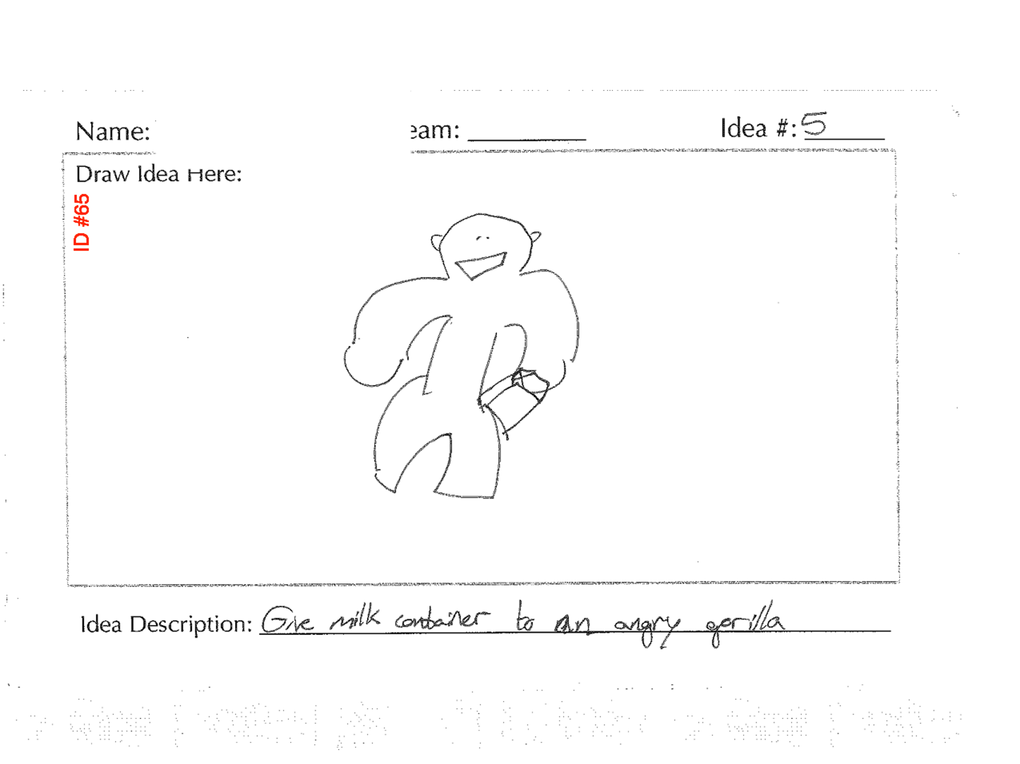 Name: eam: Idea #: 5
Draw Idea Here:
ID #65
Idea Description: Give milk container to an angry gorilla